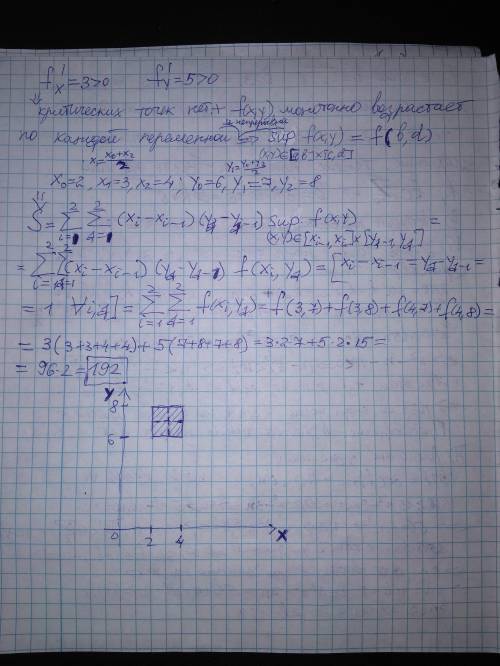 f'ₓ=3>0 f'ᵧ=5>0
⇓
критических точек нет, + f(x,y) монотонно возрастает
и непрерывна
по каждой переменной ⇒ sup f(x,y) = f(b,d)
(x,y)∈[a,b]×[c,d]
x₁=(x₀+x₂)/2 y₁=(y₀+y₂)/2
x₀=2, x₁=3, x₂=4; y₀=6, y₁=7, y₂=8
⇓
S̄=∑_{i=1}^{2} ∑_{j=1}^{2} (xᵢ-xᵢ₋₁)(yⱼ-yⱼ₋₁) sup f(x,y) =
(x,y)∈[xᵢ₋₁,xᵢ]×[yⱼ₋₁,yⱼ]
=∑_{i=1}^{2} ∑_{j=1}^{2} (xᵢ-xᵢ₋₁)(yⱼ-yⱼ₋₁) f(xᵢ,yⱼ) = [xᵢ-xᵢ₋₁=yⱼ-yⱼ₋₁=
=1 ∀i,j] = ∑_{i=1}^{2} ∑_{j=1}^{2} f(xᵢ,yⱼ) = f(3,7)+f(3,8)+f(4,7)+f(4,8)=
=3(3+3+4+4)+5(7+8+7+8)=3·2·7+5·2·15=
=96·2=192
Y
8
6
0 2 4 X